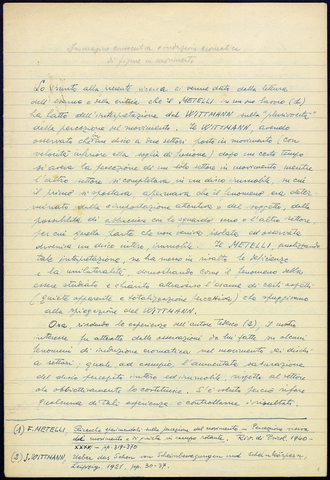 di figure in movimento
Lo spunto alla presente ricerca ci venne dato dalla lettura
dell'esame e della critica che il METELLI in un suo lavoro (1)
ha fatto dell'interpretazione del WITTMANN sulla "plurivocità"
della percezione del movimento. Il WITTMANN, avendo
osservato che in un disco a due settori posto in movimento (con
velocità inferiore alla soglia di fusione) dopo un certo tempo
si aveva la percezione di un solo settore in movimento mentre
l'altro settore si completava in un disco immobile, su cui
il primo si spostava, affermava che il fenomeno era deter-
minato dalla comportazione attentiva del soggetto, dalla
possibilità di aderire con lo sguardo uno o l'altro settore,
per cui quella parte che non veniva isolata ed osservata
diveniva un disco intero, immobile. Il METELLI, analizzando
tale interpretazione, ne ha messo in risalto le deficienze
e la unilateralità, dimostrando come il fenomeno debba
essere studiato e chiarito attraverso l'esame di certi aspetti
(quiete apparente e totalizzazione percettiva), che sfuggivano
alla spiegazione del WITTMANN.
Ora, rivedendo le esperienze dell'autore tedesco (2), il nostro
interesse fu attratto dalle osservazioni da lui fatte su alcuni
fenomeni di induzione cromatica nel movimento dei dischi
a settori; quale, ad esempio, l'aumentata saturazione
del disco percepito intero ed immobile rispetto al settore
che obbiettivamente lo costituisce. Si è voluto perciò rifare
qualcuna di tali esperienze e controllarne i risultati.
(1) F. METELLI, Ricerche sperimentali sulla percezione del movimento - Percezione visiva
del movimento e di quiete in campo rotante. Riv. di Psicol. 1940 -
XXXVI - pp. 319-370
(2) J. WITTMANN, Ueber das Sehen von Scheinbewegungen und Scheinkörpern.
Leipzig 1921. pp. 30-37.